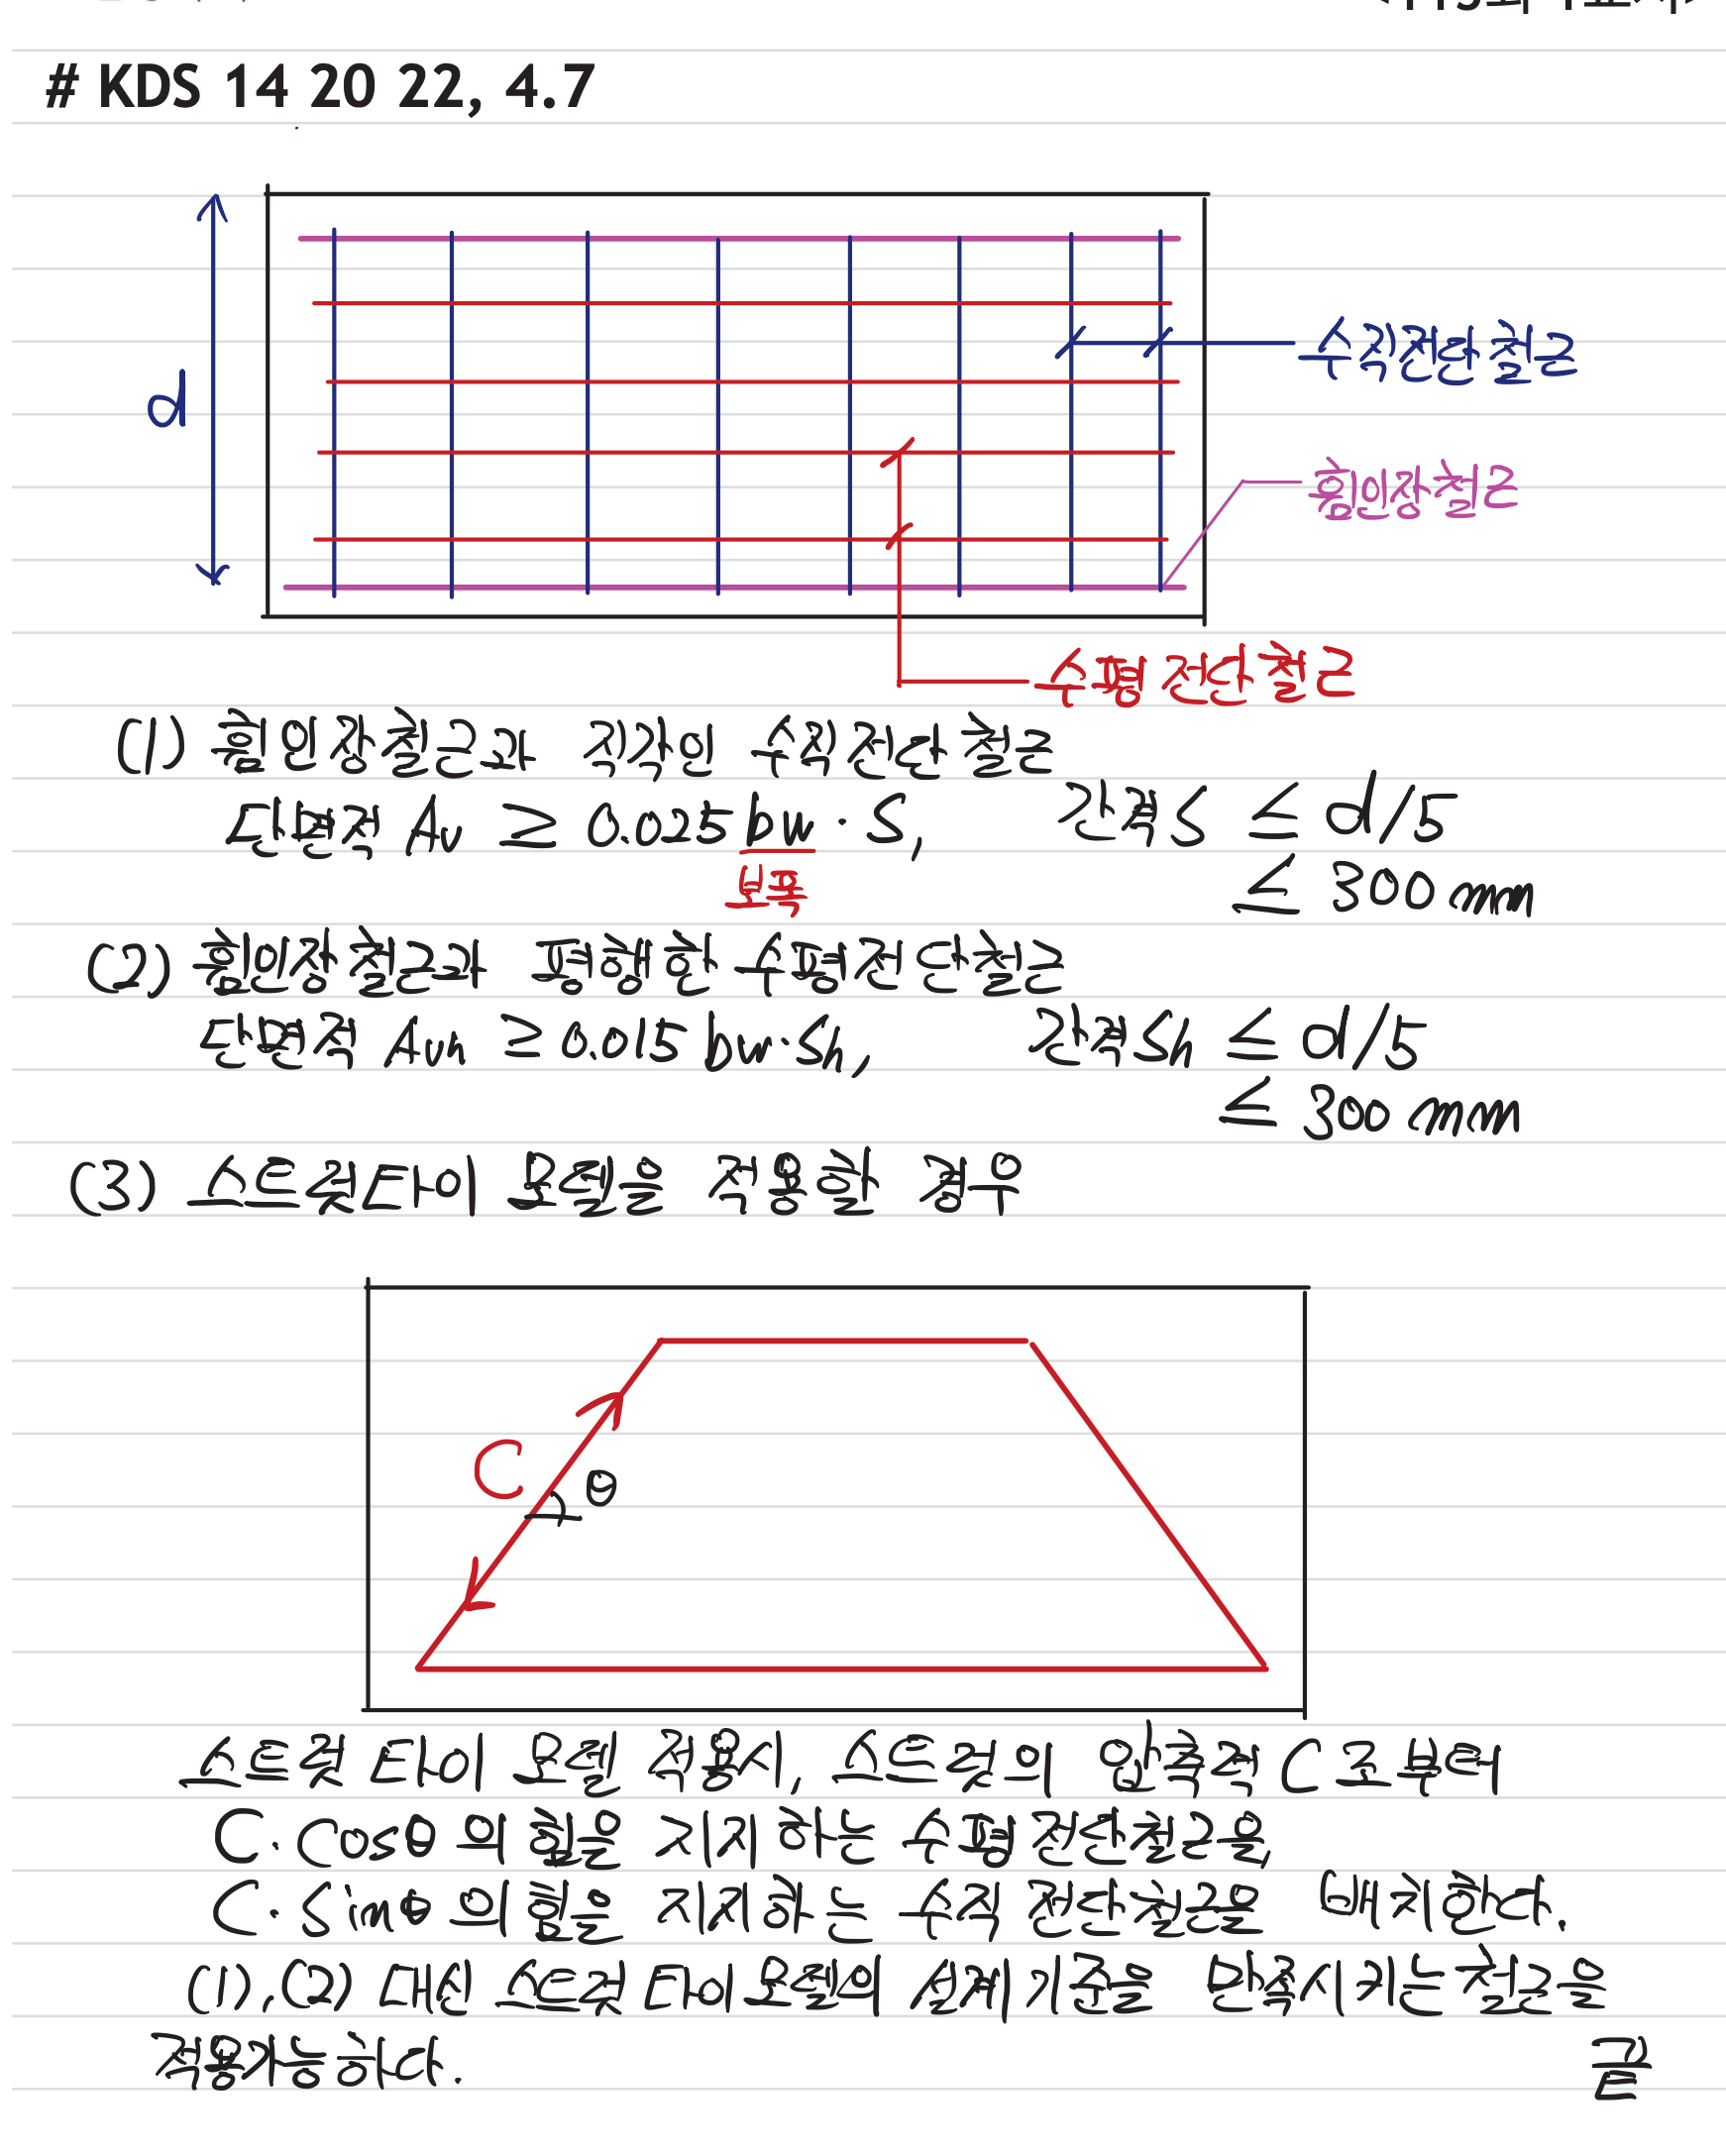 # KDS 14 20 22, 4.7
d
수직전단철근
휨인장철근
수평전단철근
(1) 휨인장철근과 직각인 수직전단철근
단면적 Av ≥ 0.025 bw · S, 간격 S ≤ d/5
보폭
≤ 300 mm
(2) 휨인장철근과 평행한 수평전단철근
단면적 Avh ≥ 0.015 bw·Sh, 간격 Sh ≤ d/5
≤ 300 mm
(3) 스트럿타이 모델을 적용할 경우
C
θ
스트럿 타이 모델 적용시, 스트럿의 압축력 C로부터
C · cosθ의 힘을 지지하는 수평전단철근을,
C · Sinθ의 힘을 지지하는 수직 전단철근을 배치한다.
(1), (2) 대신 스트럿 타이모델의 설계기준을 만족시키는 철근을
적용가능하다.
끝